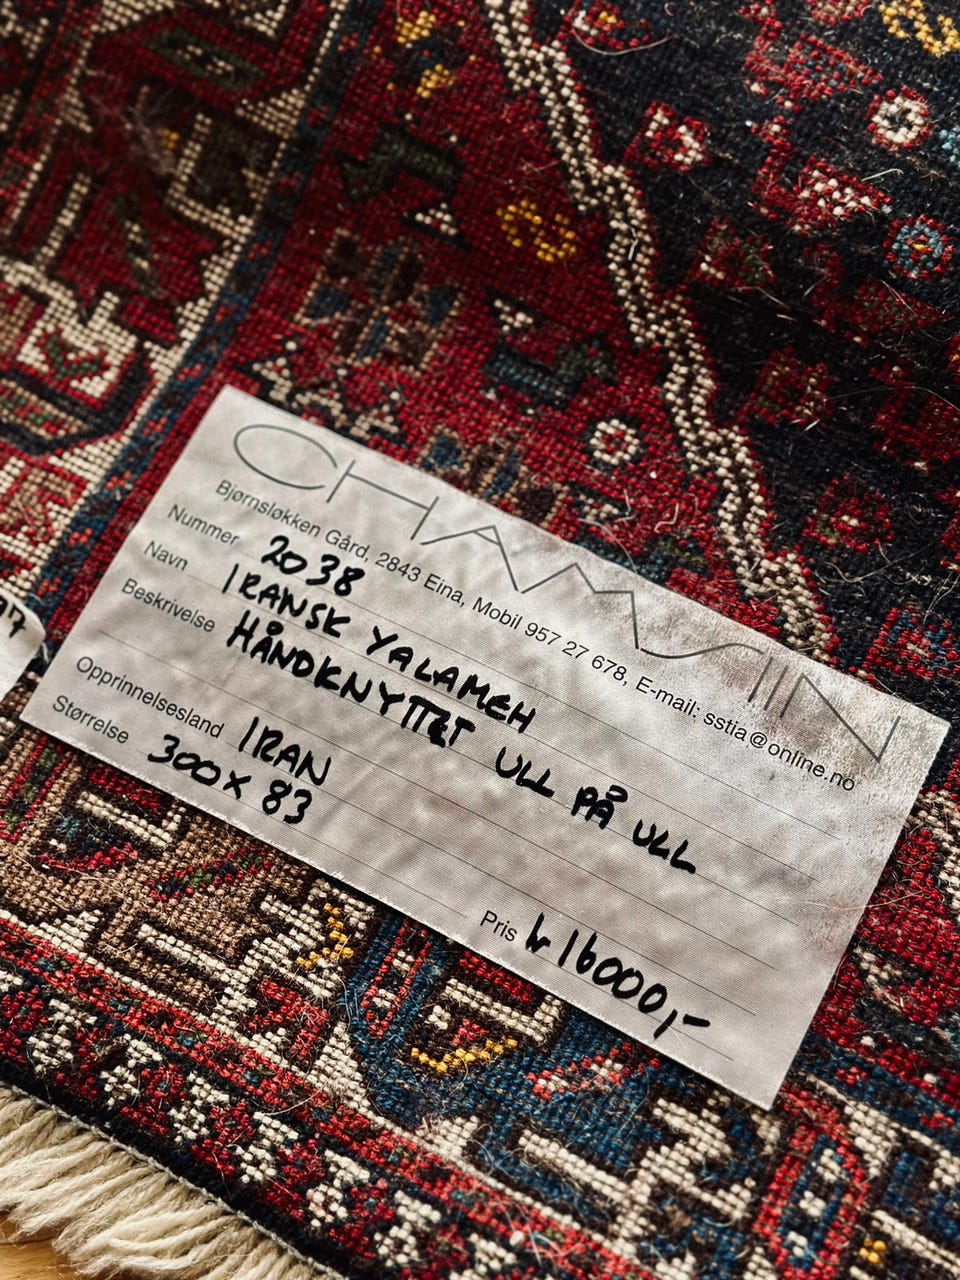 CHAMSIIN
Bjørnsløkken Gård, 2843 Eina, Mobil 957 27 678, E-mail: sstia@online.no
Nummer 2038
Navn IRANSK YALAMEH
Beskrivelse HÅNDKNYTTET ULL PÅ ULL
Opprinnelsesland IRAN
Størrelse 300 x 83
Pris kr 16000,-